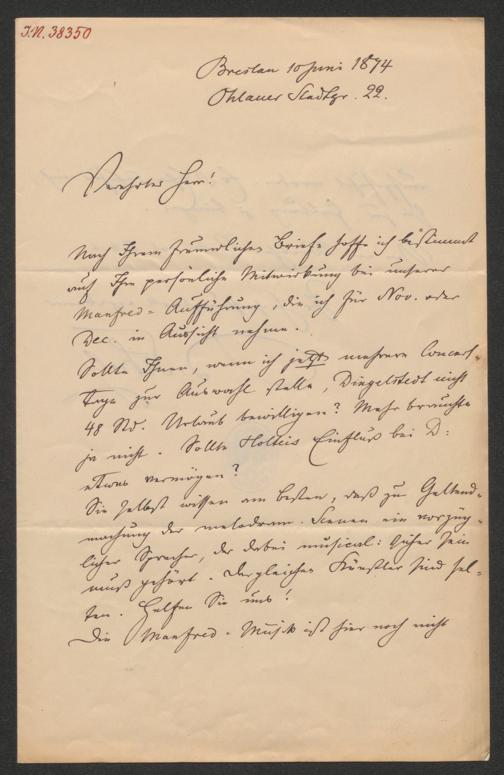 I.N. 38350
Breslau 10 Juni 1874
Ohlauer Stadtgr. 22.
Verehrter Herr!
Nach Ihrem freundlichen Briefe hoffe ich bestimmt
auf Ihre persönliche Mitwirkung bei unserer
Manfred-Aufführung, die ich für Nov. oder
Dec. in Aussicht nehme.
Sollte Ihnen, wenn ich jetzt mehrere Concert-
tage zur Auswahl stelle, Dingelstedt nicht
48 Std. Urlaub bewilligen? Mehr brauchte
ja nicht. Sollte Holteis Einfluß bei D.
etwas vermögen?
Sie selbst wissen am besten, daß zu Geltend-
machung der melodram. Scenen ein vorzüg-
licher Sprecher, der dabei musical: sicher sein
muß gehört. Dergleichen Künstler sind sel-
ten. Helfen Sie uns!
Die Manfred-Musik ist hier noch nicht